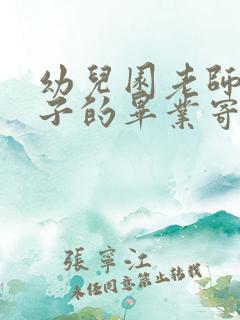 幼兒園老師
子的畢業寄
張寧江
未任同意禁止轉載